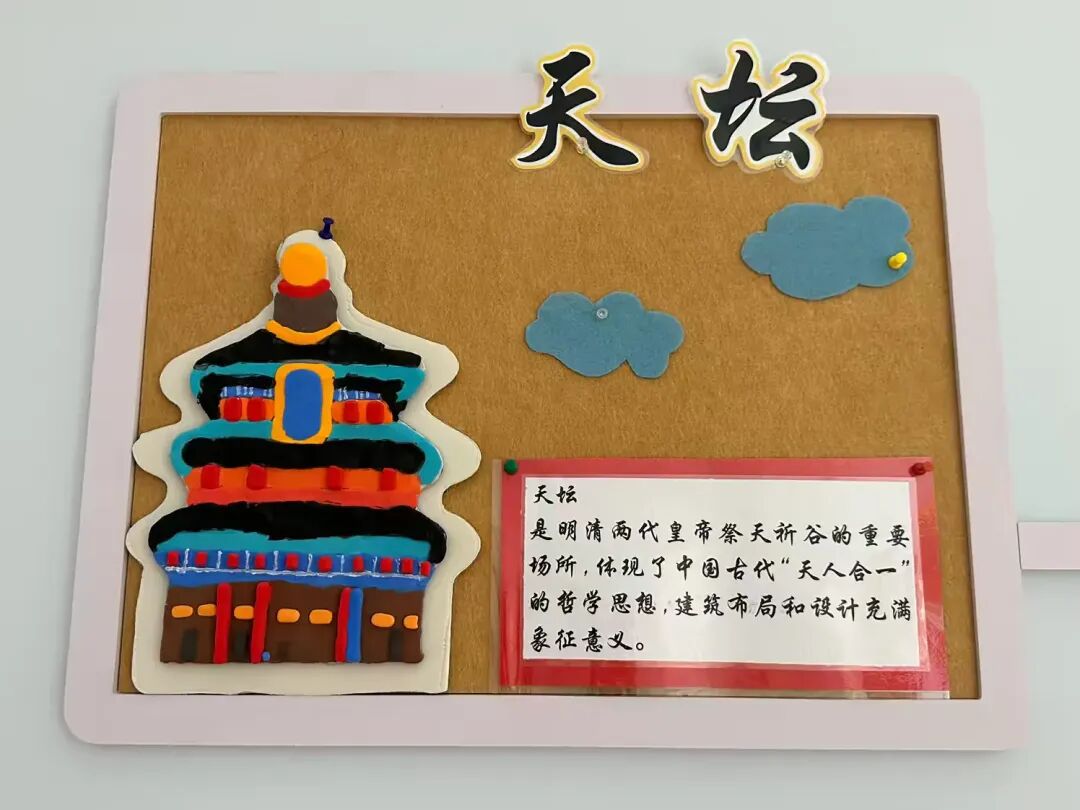 天坛
天坛
是明清两代皇帝祭天祈谷的重要
场所，体现了中国古代“天人合一”
的哲学思想，建筑布局和设计充满
象征意义。